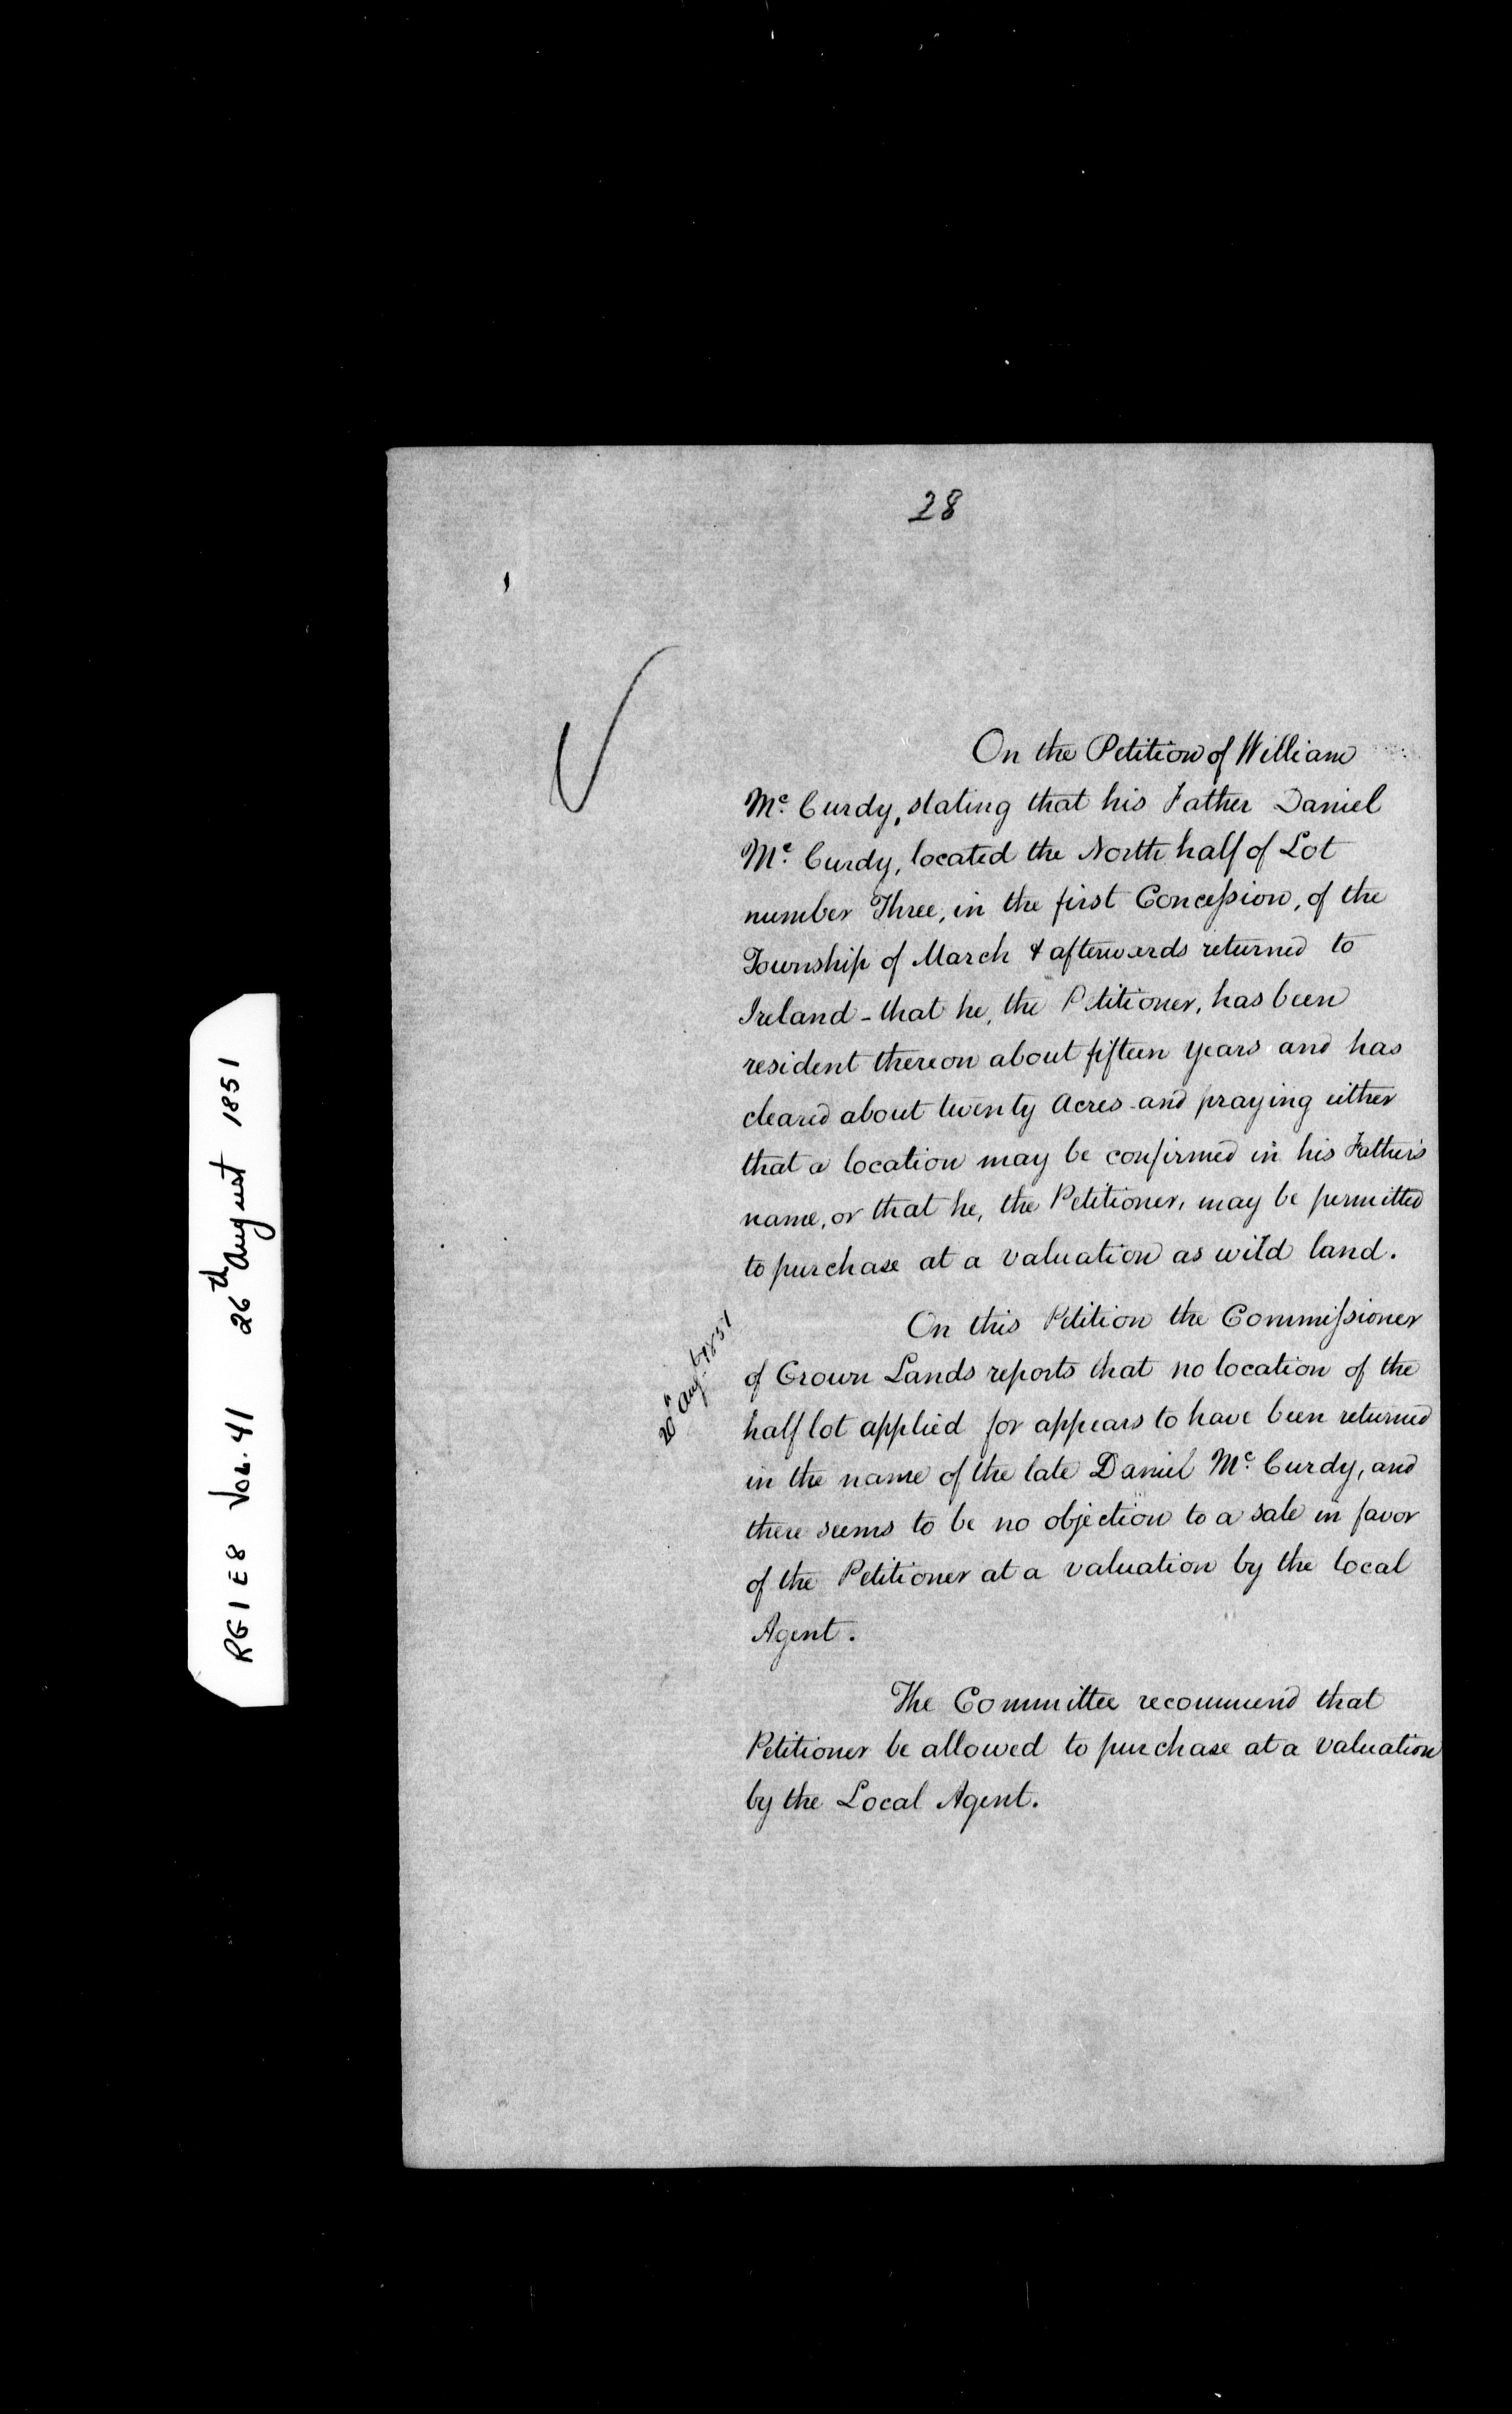 28
On the Petition of William
Mc. Curdy, stating that his Father Daniel
Mc. Curdy, located the North half of Lot
number Three, in the first Concession, of the
Township of March & afterwards returned to
Ireland - that he, the Petitioner, has been
resident thereon about fifteen years and has
cleared about twenty Acres and praying either
that a location may be confirmed in his Father's
name, or that he, the Petitioner, may be permitted
to purchase at a valuation as wild land.
20th Augt. 1851
On this Petition the Commissioner
of Crown Lands reports that no location of the
half lot applied for appears to have been returned
in the name of the late Daniel Mc. Curdy, and
there seems to be no objection to a sale in favor
of the Petitioner at a valuation by the local
Agent.
The Committee recommend that
Petitioner be allowed to purchase at a valuation
by the Local Agent.
RG 1 E8 Vol. 41 26th August 1851